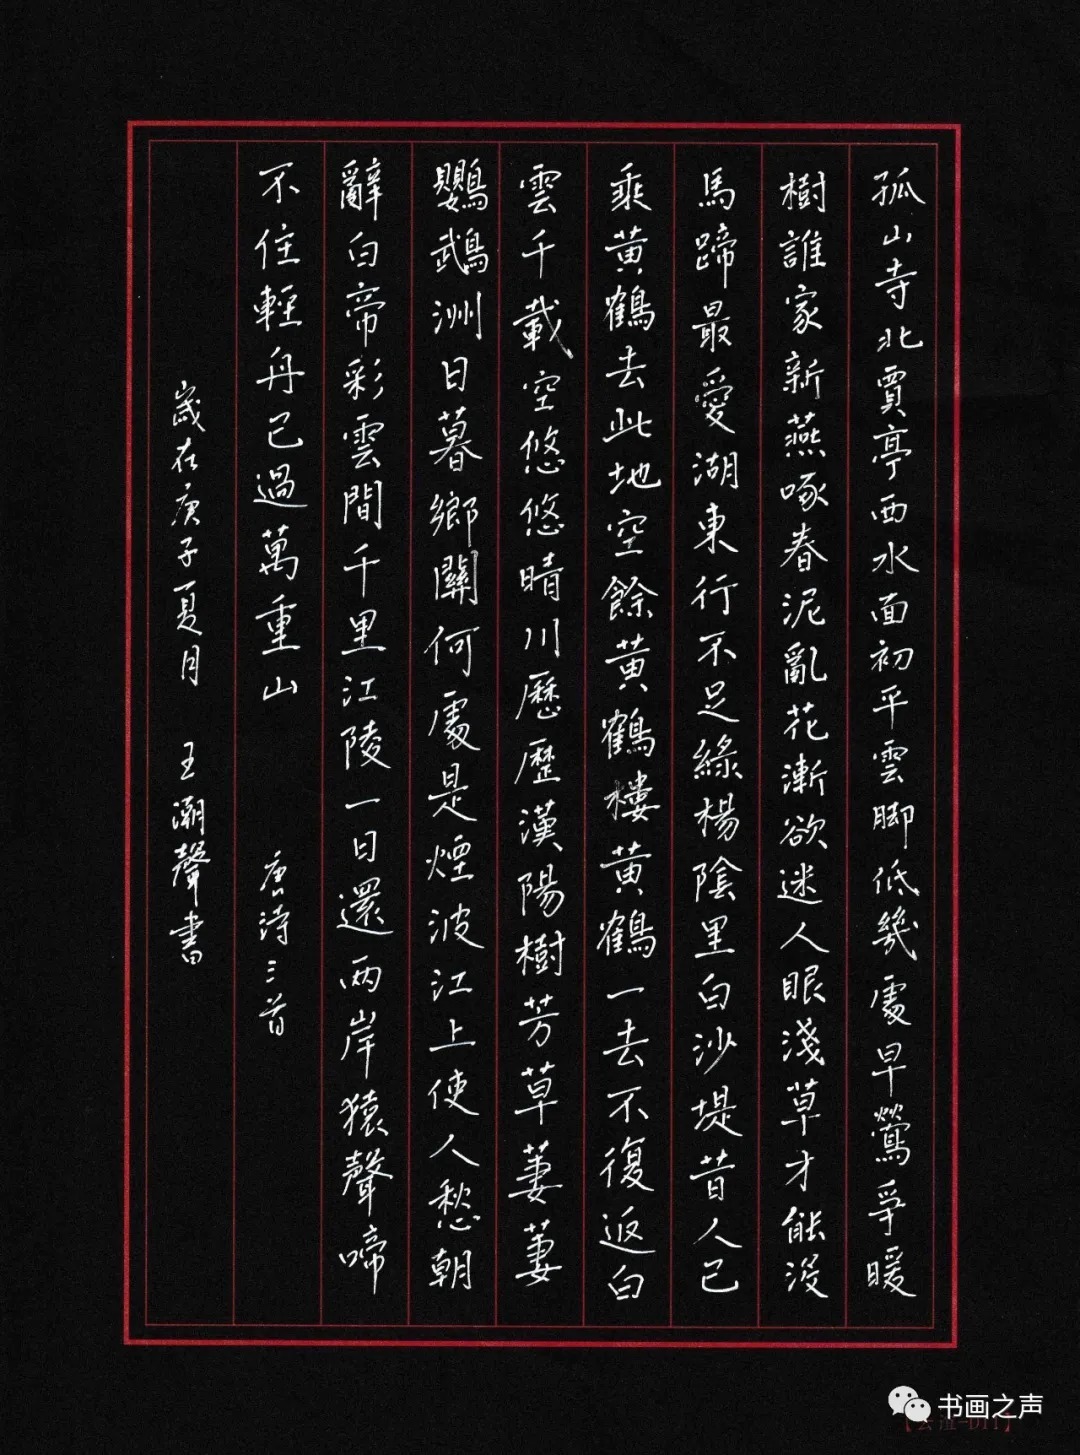 孤山寺北賈亭西水面初平雲脚低幾處早鶯爭暖
樹誰家新燕啄春泥亂花漸欲迷人眼淺草才能沒
馬蹄最愛湖東行不足綠楊陰里白沙堤昔人已
乘黃鶴去此地空餘黃鶴樓黃鶴一去不復返白
雲千載空悠悠晴川歷歷漢陽樹芳草萋萋
鸚鵡洲日暮鄉關何處是煙波江上使人愁朝
辭白帝彩雲間千里江陵一日還兩岸猿聲啼
不住輕舟已過萬重山 唐詩三首
歲在庚子夏月 王潮聲書
书画之声